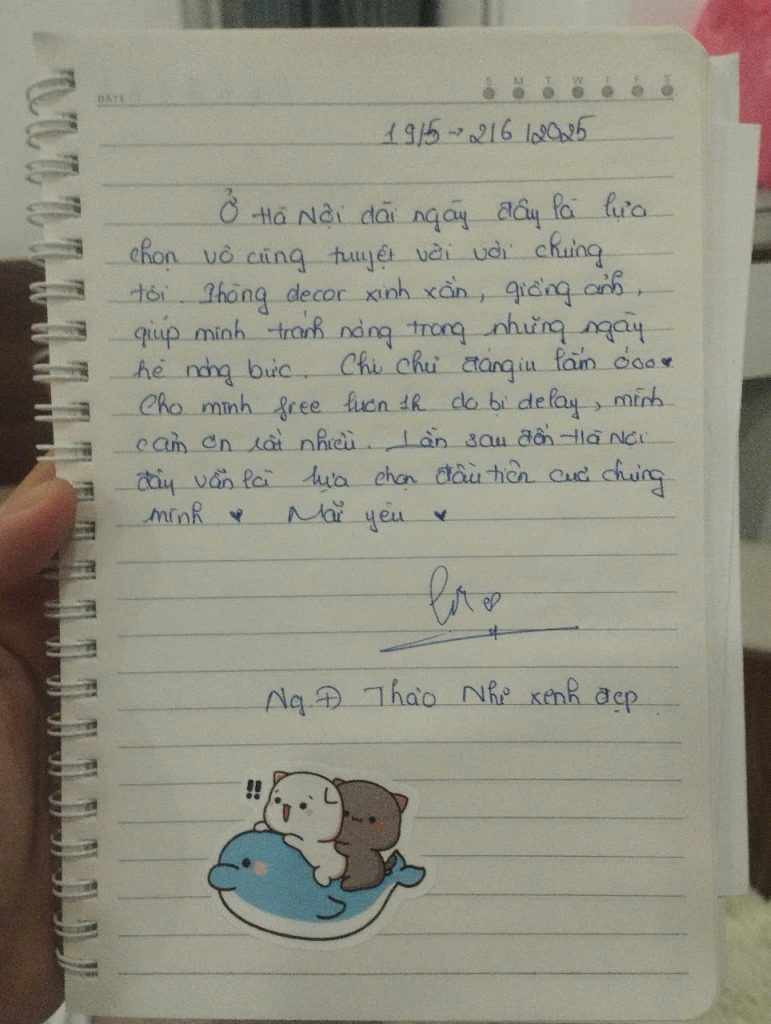 DATE
S M T W T F S
19/5 → 2/6/2025
Ở Hà Nội dài ngày đây là lựa
chọn vô cùng tuyệt vời với chúng
tôi. Phòng decor xinh xắn, giống ảnh,
giúp mình tránh nóng trong những ngày
hè nóng bức. Chị chủ đángiu lắm óoo ♥
Cho mình free luôn 1h do bị delay, mình
cảm ơn rất nhiều. Lần sau đến Hà Nội
đây vẫn là lựa chọn đầu tiên của chúng
mình ♥ Mãi yêu ♥
Ng. Đ Thảo Nhi xênh đẹp
!!